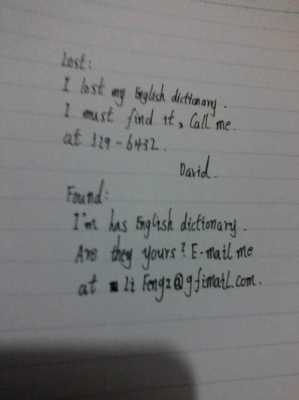 Lost:
I lost my English dictionary.
I must find it, Call me.
at 329-6432.
David.
Found:
I'm has English dictionary.
Are they yours? E-mail me
at Li Feng2@gfimail.com.